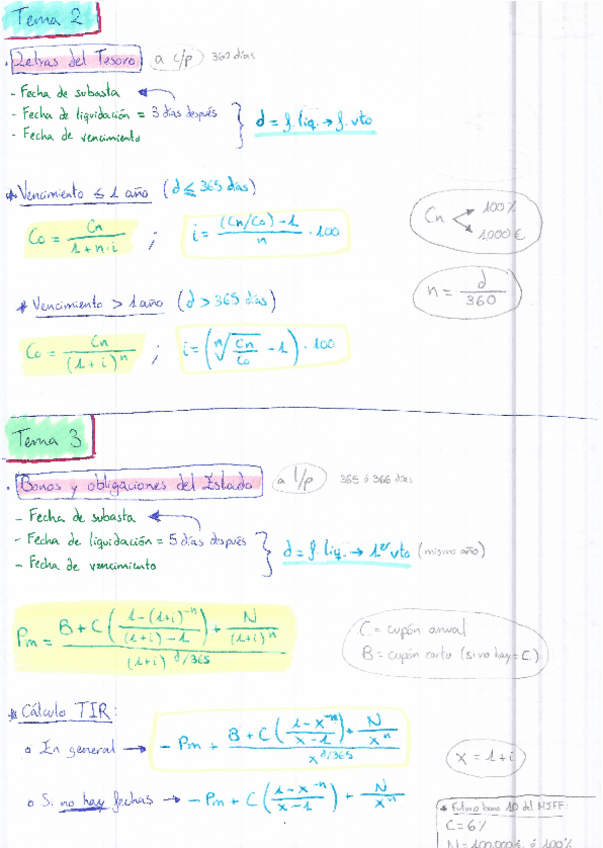 Tema 2
· Letras del Tesoro a c/p 360 días
- Fecha de subasta
- Fecha de liquidación = 3 días después
- Fecha de vencimiento
d = f. liq. → f. vto
* Vencimiento ≤ 1 año (d ≤ 365 días)
Co = Cn / (1 + n·i) ; i = ((Cn/Co) - 1) / n · 100
Cn → 100%
→ 1.000 €
n = d / 360
* Vencimiento > 1 año (d > 365 días)
Co = Cn / (1+i)^n ; i = (ⁿ√(Cn/Co) - 1) · 100
Tema 3
· Bonos y obligaciones del Estado a l/p 365 ó 366 días
- Fecha de subasta
- Fecha de liquidación = 5 días después
- Fecha de vencimiento
d = f. liq. → 1er vto (mismo año)
Pm = (B + C ((1-(1+i)^-n) / ((1+i)-1)) + N/(1+i)^n) / (1+i)^d/365
C = cupón anual
B = cupón corto (si no hay = C)
* Cálculo TIR:
o En general → - Pm + (B + C ((1-x^-n) / (x-1)) + N/x^n) / x^d/365
x = 1+i
o Si no hay fechas → - Pm + C ((1-x^-n) / (x-1)) + N/x^n
* Futuro bono 10 del MEFF:
C = 6%
N = 100.000 € ó 100%